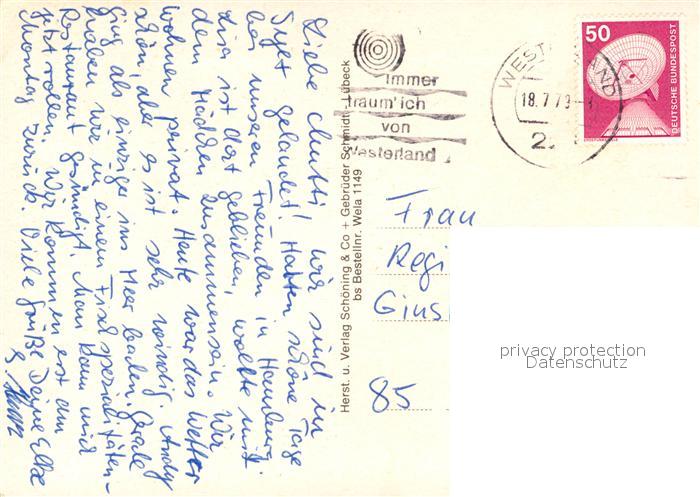 Liebe Mutti, wir sind in
Sylt gelandet! Hatten schöne Tage
bei unseren Freunden in Hamburg.
Lisa ist dort geblieben, wollte mit
dem Mädchen zusammensein. Wir
wohnen privat. Heute war das Wetter
schön, aber es ist sehr windig. Andy
ging als einziger ins Meer baden. Grade
haben wir in einem Fischspezialitäten-
Restaurant gesündigt. Man kann mich
jetzt rollen. Wir kommen erst am
Montag zurück. Viele Grüße Deine Elke
Herst. u. Verlag Schöning & Co + Gebrüder Schmidt, Lübeck
bs Bestellnr. Wela 1149
immer
träum'ich
von
Westerland
WESTERLAND
18.7.79
2
50
DEUTSCHE BUNDESPOST
Frau
Regi
Gius
85
privacy protection
Datenschutz